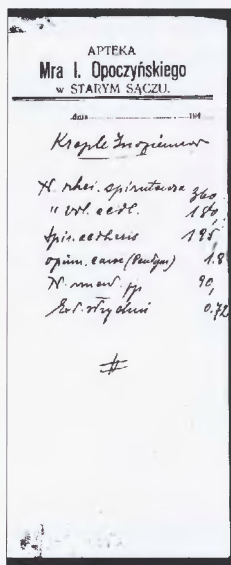 APTEKA
Mra I. Opoczyńskiego
w STARYM SĄCZU.
dnia 194
Krople Inoziemcow
360.
" val. aeth. 180,
Spir. aethereus 195
opium. conc (Pantopon) 1.8
90,
Ext. strychni 0.72